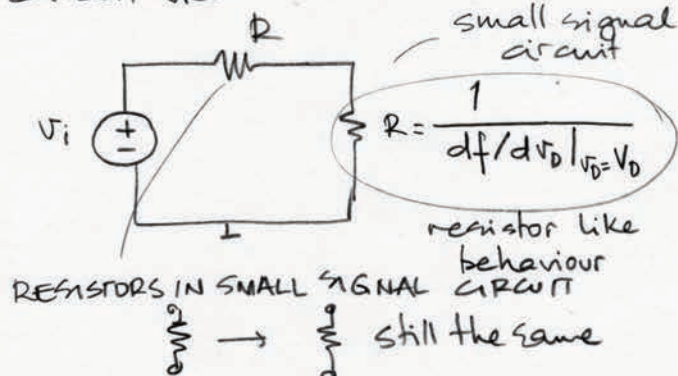 R
small signal
circuit
vi
+
-
R = 1 / df/dvD |vD=VD
resistor like
behaviour
RESISTORS IN SMALL SIGNAL CIRCUIT
→ still the same